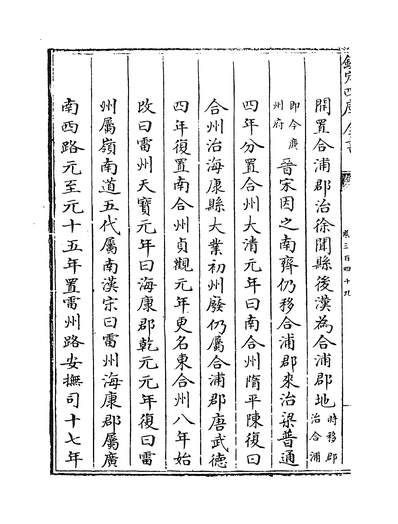 欽定四庫全書
卷三百四十九
開置合浦郡治徐聞縣後漢為合浦郡地時移郡治合浦
即今廣州府晉宋因之南齊仍移合浦郡來治梁普通
四年分置合州大清元年曰南合州隋平陳復曰
合州治海康縣大業初州廢仍屬合浦郡唐武德
四年復置南合州貞觀元年更名東合州八年始
改曰雷州天寶元年曰海康郡乾元元年復曰雷
州屬嶺南道五代屬南漢宋曰雷州海康郡屬廣
南西路元至元十五年置雷州路安撫司十七年